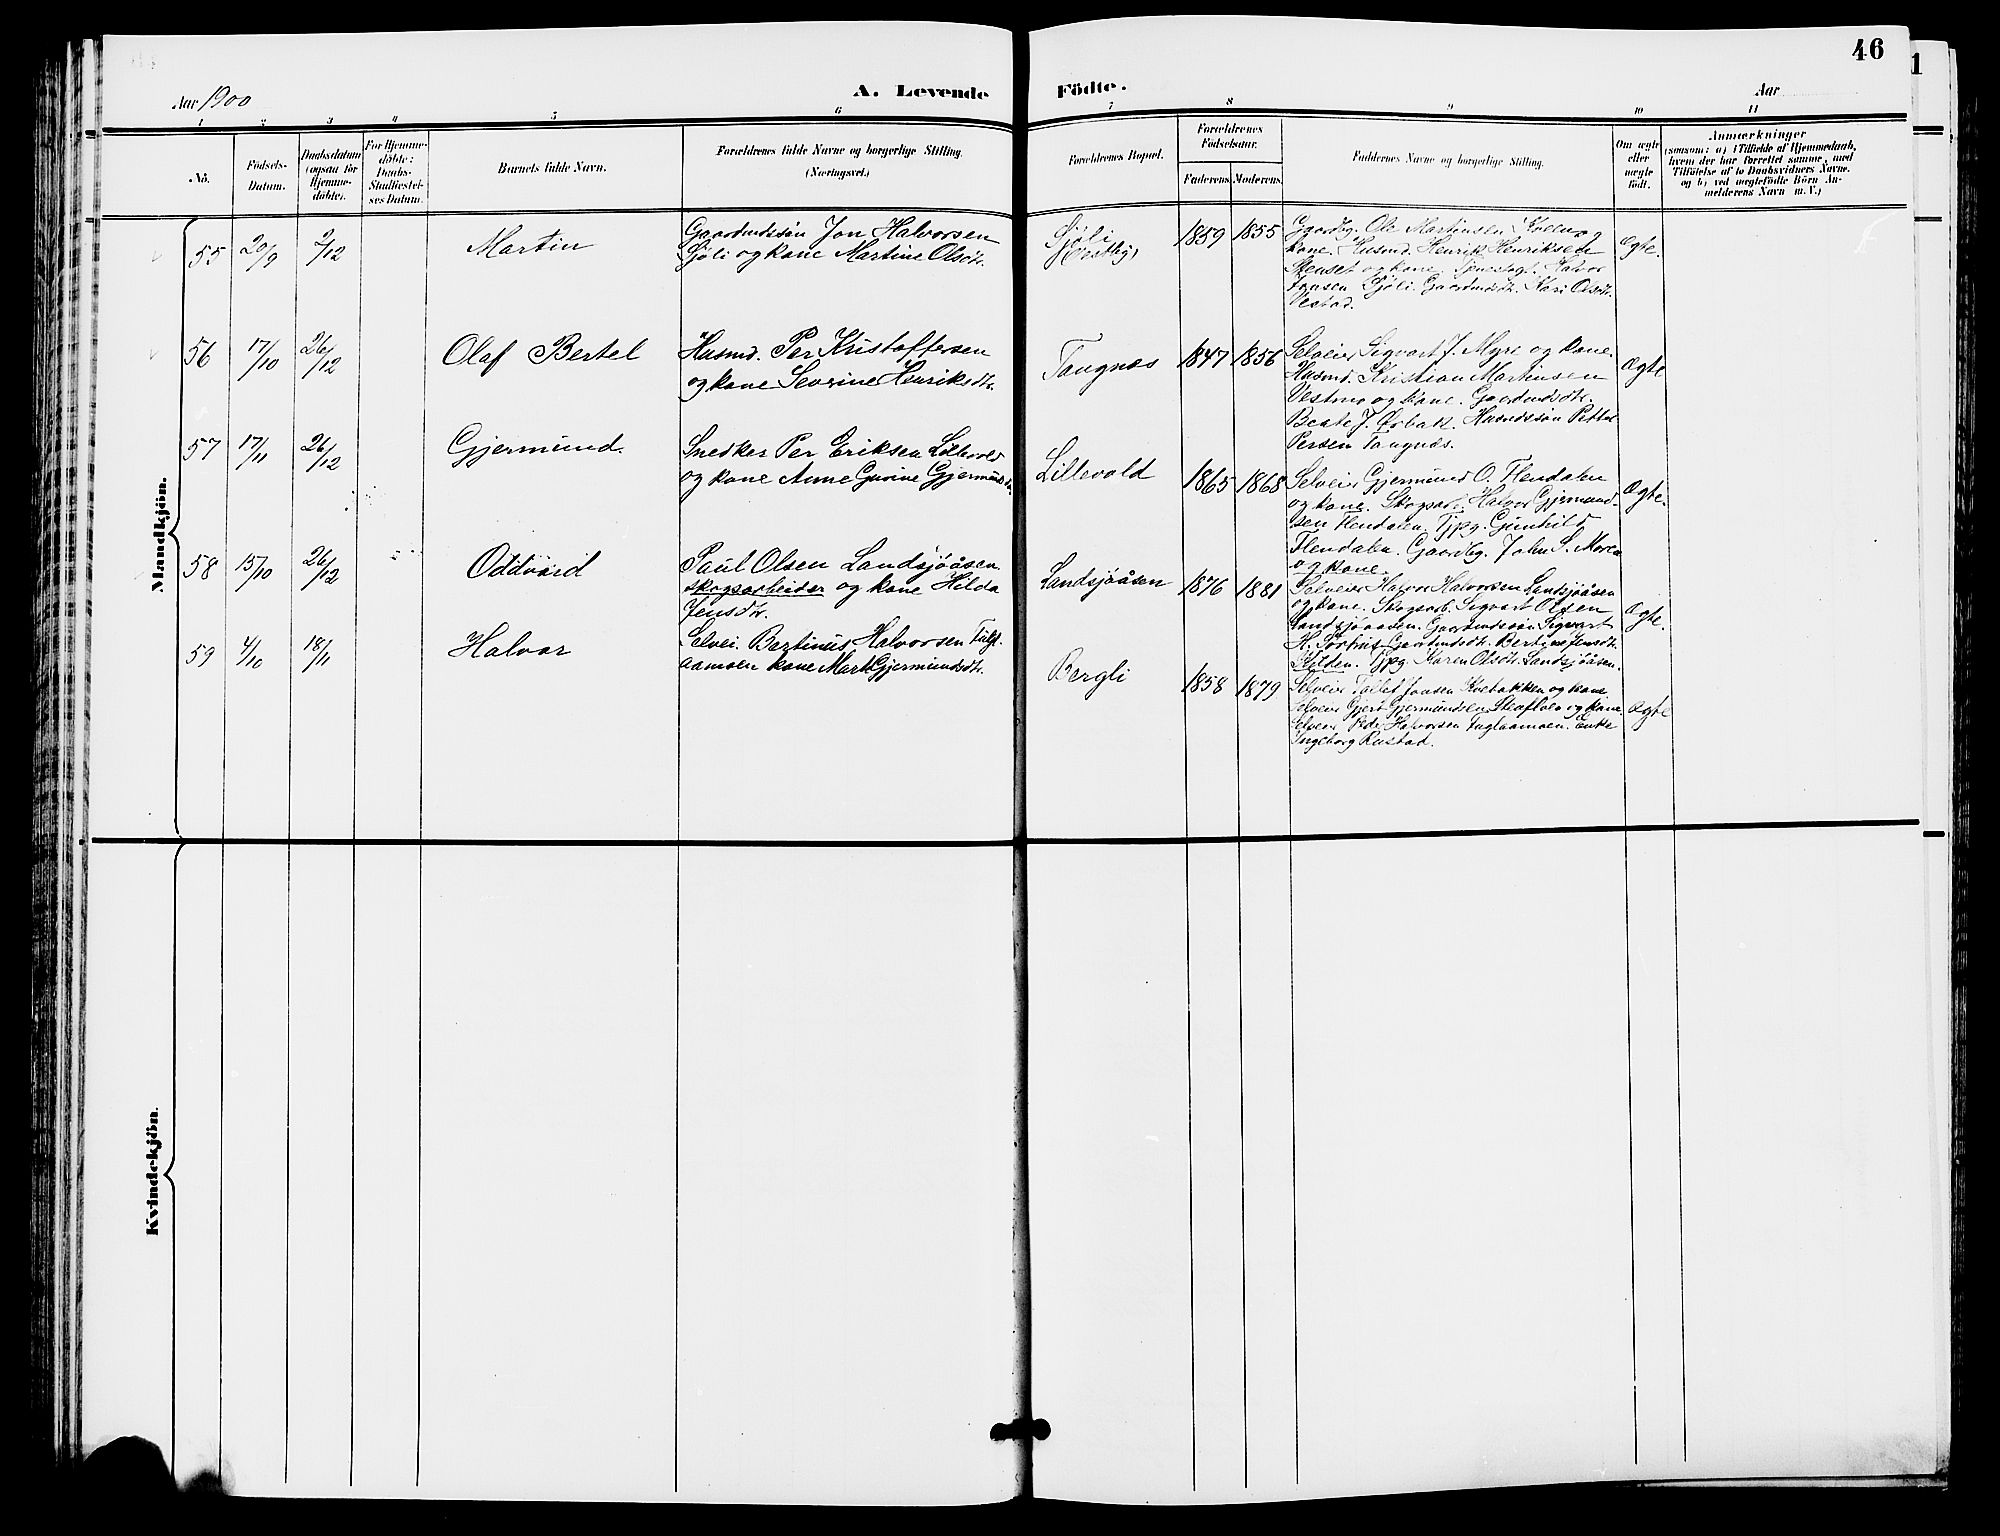 46
Aar 1900
A. Levende Födte.
Aar
1 2 3 4 5 6 7 8 9 10 11
No.
Födsels-
Datum.
Daabsdatum
(ogsaa for
Hjemme-
döbte).
For Hjemme-
döbte:
Daabs-
Stadfæstel-
ses Datum.
Barnets fulde Navn.
Forældrenes fulde Navne og borgerlige Stilling.
(Næringsvei.)
Forældrenes Bopæl.
Forældrenes
Födselsaar.
Faderens. Moderens.
Faddernes Navne og borgerlige Stilling.
Om ægte
eller
uægte
födt.
Anmærkninger
(saasom: a) i Tilfælde af Hjemmedaab,
hvem der har forrettet samme, med
Tilföielse af to Daabsvidners Navne.
og b) ved uægtefödte Börn An-
melderens Navn m. V.)
Mandkjön.
55 20/9 2/12 Martin
Gaardmdssøn Jon Halvorsen
Sjöli og kone Martine Olsdtr.
Sjöli
(Østby)
1859 1855
Gaardbg. Ole Martinsen Kolle og
kone. Husmd. Henrik Henriksen
Stenset og kone. Tjenestegt. Halvor
Jonsen Sjöli. Gaardmdsdtr. Kari Olsdtr.
Vestad.
Ægte.
56 17/10 26/12 Olaf Bertel
Husmd. Per Kristoffersen
og kone Severine Henriksdtr.
Tangnæs
1847 1856
Selveier Sigvart J. Myre og kone.
Husmd. Kristian Martinsen
Vestmo og kone. Gaardmdsdtr.
Beate J. Ørbak. Husmdssøn Petter
Persen Tangnæs.
Ægte
57 17/11 26/12 Gjermund.
Snedker Per Eriksen Lillevold
og kone Anne Gurine Gjermundsdtr.
Lillevold
1865 1868
Selveier Gjermund O. Flendalen
og kone. Skogsarb. Halvor Gjermund-
sen Flendalen. Tjpg. Gunhild
Flendalen. Gaardbg. John S. Moren
og kone.
Ægte.
58 15/10 26/12 Oddvard
Paul Olsen Landsjöåsen
skogsarbeider og kone Hilda
Jensdtr.
Landsjöåsen
1876 1881
Selveier Halvor Halvorsen Landsjöåsen
og kone. Skogsarb. Sigvart Olsen
Landsjöaasen. Gaardmdssøn Sigvart
H. Gaardmdsdtr. Bertine Jensdtr.
Kilden. Tjpg. Karen Olsdtr. Landsjöåsen.
Ægte.
59 4/10 18/11 Halvor
Selvei. Bertinus Halvorsen Fugl-
aamoen kone Marit Gjermundsdtr.
Bergli
1858 1879
Selveier Tollef Jonsen Kvebakken og kone
Selveier Gjert Gjermundsen og kone
Selveier Peder Halvorsen Fuglaamoen. Enke
Ingeborg Rustad.
Ægte
Kvindekjön.